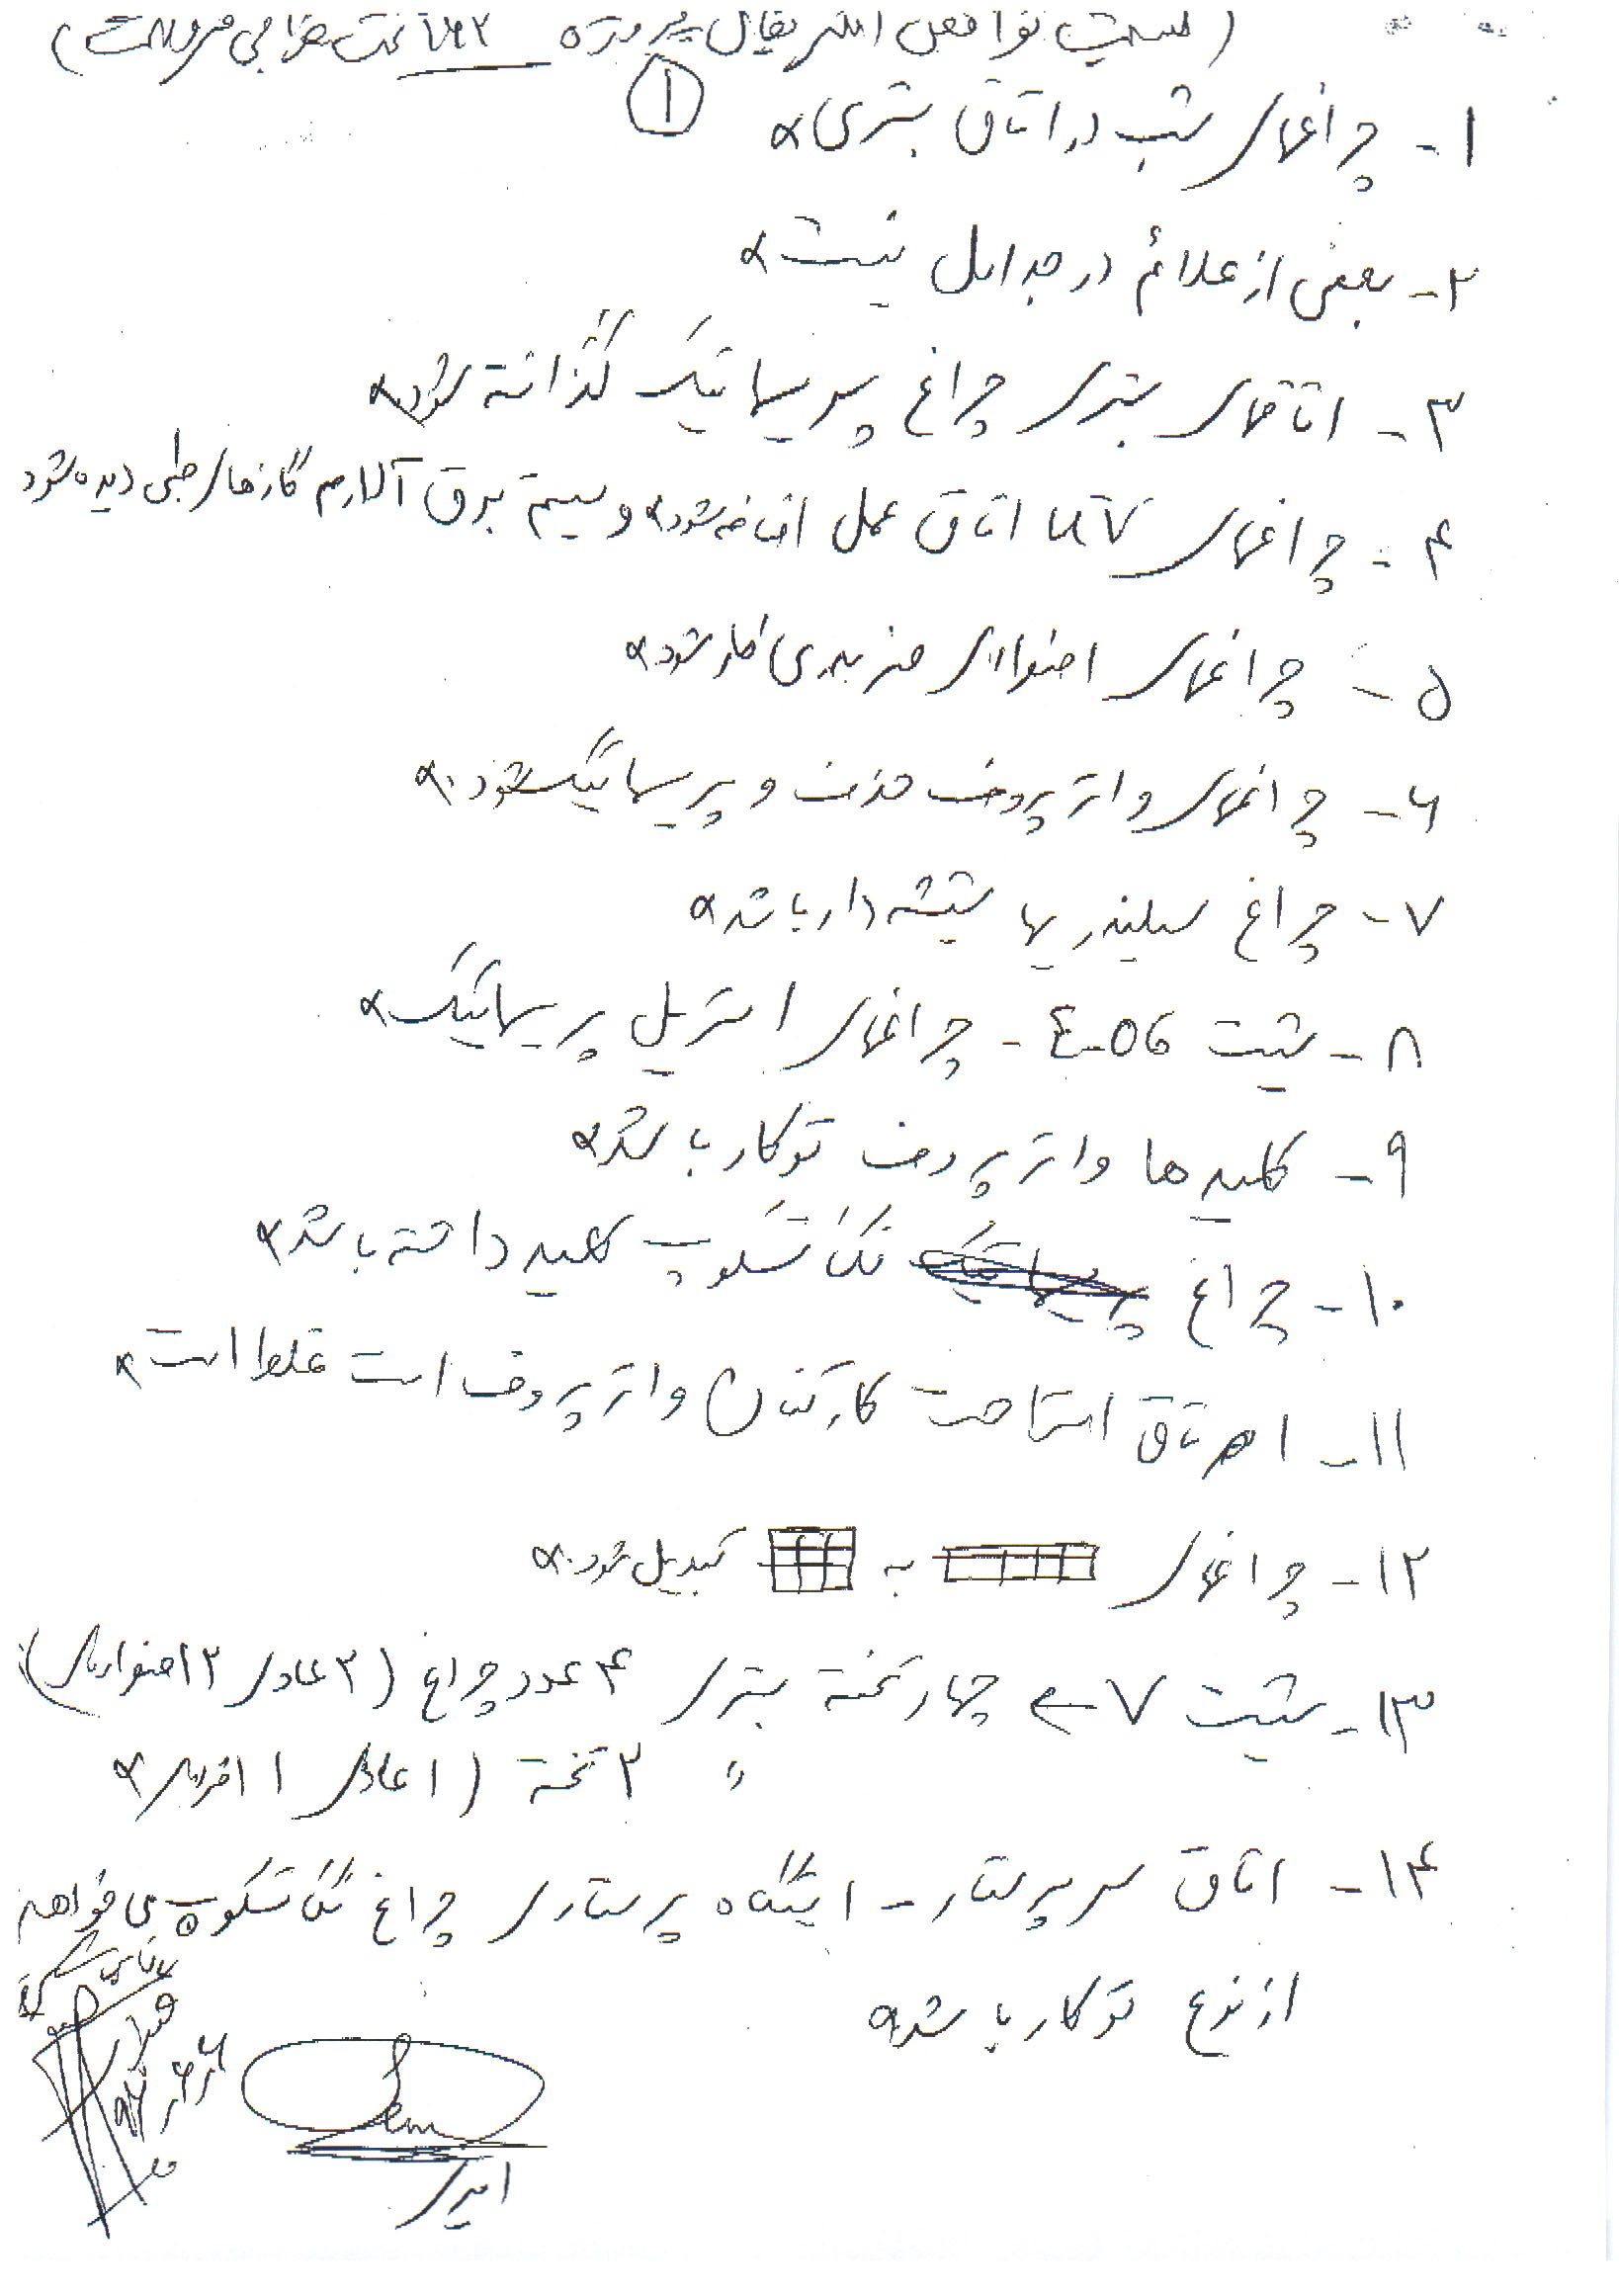 (لیست نواقص الکتریکال پروژه تخت خوابی
①
۱- چراغهای شب در اتاق بستری
۲- بعضی از علائم در جداول نیست
۳- اتاقهای بستری چراغ پریسماتیک گذاشته شود
۴- چراغهای UV اتاق عمل اضافه شود و سیستم برق آلارم گازهای طبی دیده شود
۵- چراغهای اضطراری ضربدری کار شود
۶- چراغهای واتر پروف حذف و پریسماتیک شود
۷- چراغ سیلندریها شیشه دار باشد
۸- شیت E-06 - چراغهای استریل پریسماتیک
۹- کلیدها واتر پروف توکار باشد
۱۰- چراغ نگاتسکوپ کلید داشته باشد
۱۱- اتاق استراحت کارکنان واتر پروف است غلط است
۱۲- چراغهای به تبدیل شود
۱۳- شیت ۷ ← چهار تخته بستری ۴ عدد چراغ (۲ عادی ۲ اضطراری)
" ۲ تخته (۱ عادی ۱
۱۴- اتاق سرپرستار - ایستگاه پرستاری چراغ نگاتسکوپ می خواهد
از نوع توکار باشد